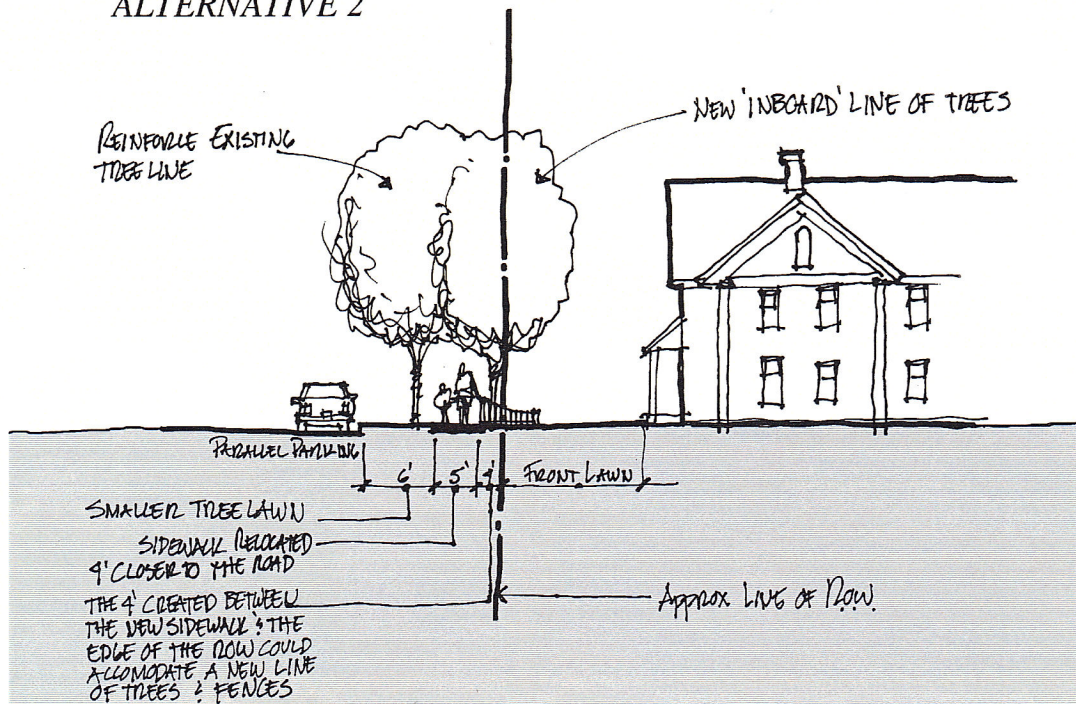 ALTERNATIVE 2
REINFORCE EXISTING
TREE LINE
NEW 'INBOARD' LINE OF TREES
PARALLEL PARKING
6'
5'
4'
FRONT LAWN
SMALLER TREE LAWN
SIDEWALK RELOCATED
4' CLOSER TO THE ROAD
THE 4' CREATED BETWEEN
THE NEW SIDEWALK & THE
EDGE OF THE ROW COULD
ACCOMODATE A NEW LINE
OF TREES & FENCES
Approx LINE OF R.O.W.